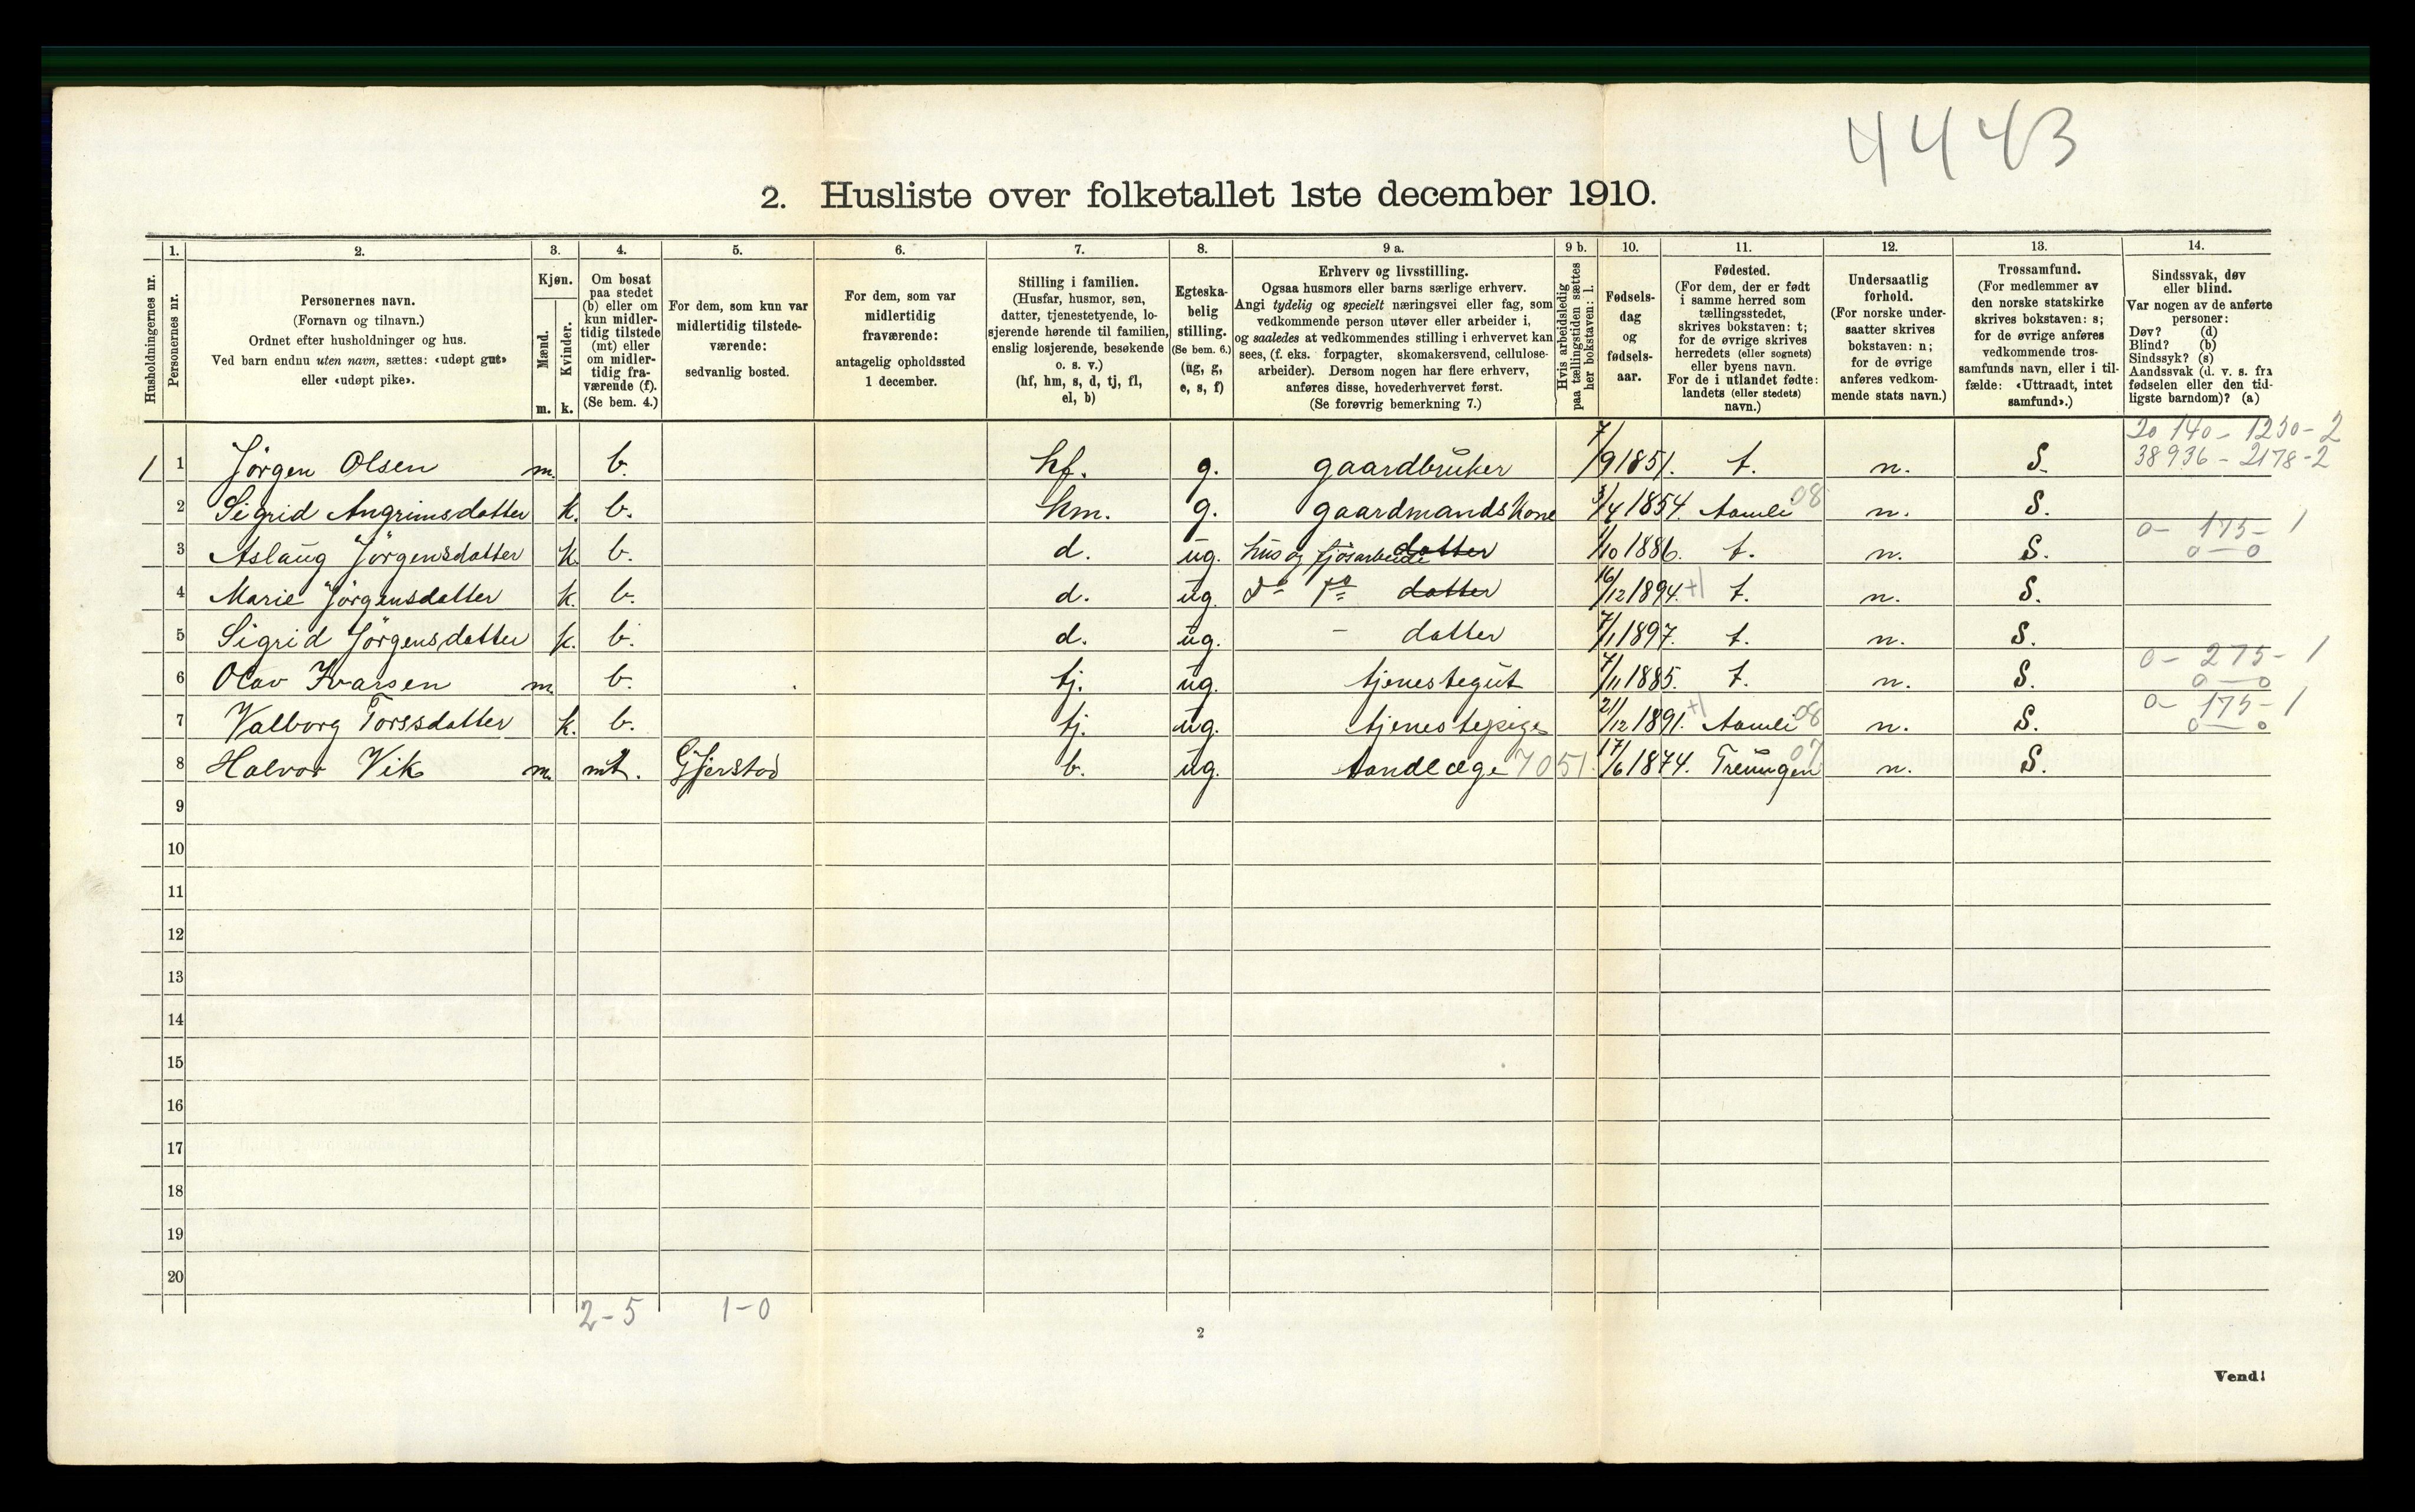 4443
2. Husliste over folketallet 1ste december 1910.
Husholdningernes nr.
1.
Personernes nr.
2.
Personernes navn.
(Fornavn og tilnavn.)
Ordnet efter husholdninger og hus.
Ved barn endnu uten navn, sættes: «udøpt gut»
eller «udøpt pike».
3.
Kjøn.
Mænd.
Kvinder.
m. k.
4.
Om bosat
paa stedet
(b) eller om
kun midler-
tidig tilstede
(mt) eller
om midler-
tidig fra-
værende (f).
(Se bem. 4.)
5.
For dem, som kun var
midlertidig tilstede-
værende:
sedvanlig bosted.
6.
For dem, som var
midlertidig
fraværende:
antagelig opholdssted
1 december.
7.
Stilling i familien.
(Husfar, husmor, søn,
datter, tjenestetyende, lo-
sjerende hørende til familien,
enslig losjerende, besøkende
o. s. v.)
(hf, hm, s, d, tj, fl,
el, b)
8.
Egteska-
belig
stilling.
(Se bem. 6.)
(ug, g,
e, s, f)
9 a.
Erhverv og livsstilling.
Ogsaa husmors eller barns særlige erhverv.
Angi tydelig og specielt næringsvei eller fag, som
vedkommende person utøver eller arbeider i,
og saaledes at vedkommendes stilling i erhvervet kan
sees, (f. eks. forpagter, skomakersvend, cellulose-
arbeider). Dersom nogen har flere erhverv,
anføres disse, hovederhvervet først.
(Se forøvrig bemerkning 7.)
9 b.
Hvis arbeidsledig
paa tællingstiden sættes
her bokstaven: l.
10.
Fødsels-
dag
og
fødsels-
aar.
11.
Fødested.
(For dem, der er født
i samme herred som
tællingsstedet,
skrives bokstaven: t;
for de øvrige skrives
herredets (eller sognets)
eller byens navn.
For de i utlandet fødte:
landets (eller stedets)
navn.)
12.
Undersaatlig
forhold.
(For norske under-
saatter skrives
bokstaven: n;
for de øvrige
anføres vedkom-
mende stats navn.)
13.
Trossamfund.
(For medlemmer av
den norske statskirke
skrives bokstaven: s;
for de øvrige anføres
vedkommende tros-
samfunds navn, eller i til-
fælde: «Uttraadt, intet
samfund».)
14.
Sindssvak, døv
eller blind.
Var nogen av de anførte
personer:
Døv? (d)
Blind? (b)
Sindssyk? (s)
Aandssvak (d. v. s. fra
fødselen eller den tid-
ligste barndom)? (a)
20 140 - 1230 - 2
1 1 Jörgen Olsen m. b. hf. g. gaardbruker 7/9 1851. t. n. S. 38936 - 2178 - 2
2 Sigrid Angrimsdatter k. b. hm. g. gaardmandskone 3/4 1854. Aamli 08 n. S.
3 Aslaug Jörgensdatter k. b. d. ug. hus og fjösarbeide datter 1/10 1886. t. n. S. 0 - 175 - 1
0 - 0
4 Marie Jörgensdatter k. b. d. ug. do do datter 16/12 1894. +1 t. n. S.
5 Sigrid Jörgensdatter k. b. d. ug. - datter 7/1 1897. t. n. S.
6 Olav Ivarsen m. b. tj. ug. tjenestegut 7/11 1885. t. n. S. 0 - 275 - 1
0 - 0
7 Valborg Torssdatter k. b. tj. ug. tjenestepige 21/12 1891. +1 Aamli 08 n. S. 0 - 175 - 1
0 - 0
8 Halvor Vik m. mt. Gjerstad b. ug. tandlæge 7051 17/6 1874. Treungen 07 n. S.
9
10
11
12
13
14
15
16
17
18
19
20
2 - 5 1 - 0
2
Vend!